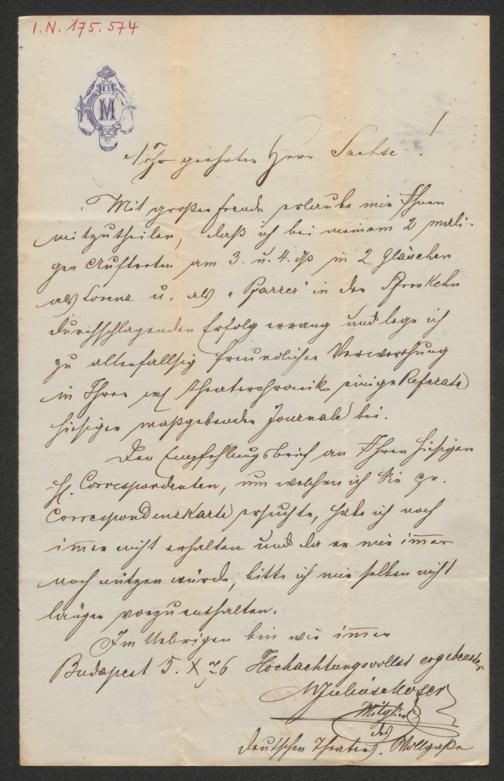 I.N. 175.574
M
Sehr geehrter Herr Sachse!
Mit großer Freude erlaube mir Ihnen
mitzutheilen, daß ich bei meinem 2 mali-
gen Auftreten am 3. u. 4. ds in 2 Gläschen
als Lorenz u. als „Pfarrer" in der
durchschlagenden Erfolg errang und lege ich
zu allenfallsig freundlicher Verwerthung
in Ihrer Theaterchronik einige Referate
hiesiger maßgebender Journale bei.
Den Empfehlungsbrief an Ihren hiesigen
H. Correspondenten, um welchen ich Sie pr.
Correspondenzkarte ersuchte, habe ich noch
immer nicht erhalten und da er mir immer
noch nützen würde, bitte ich mir selben nicht
länger vorzuenthalten.
Im Uebrigen bin wie immer
Budapest 5. X 76 Hochachtungsvollst ergebenster
Julius
Mitglied
des
Deutschen Theaters, Wollgaße